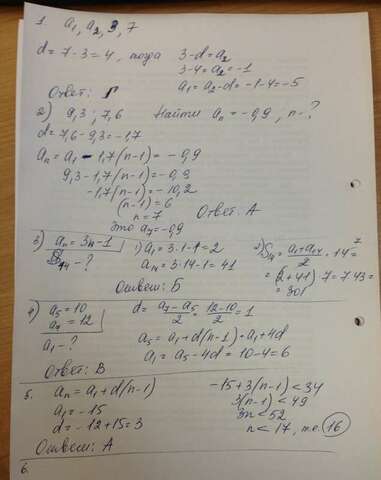 1. a₁, a₂, 3, 7
d = 7-3 = 4, тогда 3-d = a₂
3-4 = a₂ = -1
a₁ = a₂-d = -1-4 = -5
Ответ: Г
2) 9,3 ; 7,6 Найти aₙ = -0,9, n-?
d = 7,6-9,3 = -1,7
aₙ = a₁ - 1,7(n-1) = -0,9
9,3-1,7(n-1) = -0,9
-1,7(n-1) = -10,2
(n-1) = 6
n = 7
это a₇ = -0,9 Ответ: А
3) aₙ = 3n-1
S₁₄ - ?
1) a₁ = 3·1-1 = 2
a₁₄ = 3·14-1 = 41
2) S₁₄ = (a₁+a₁₄)/2 · 14 =
= (2+41) 7 = 7·43 =
= 301
Ответ: Б
4) a₅ = 10
a₇ = 12
a₁ - ?
d = (a₇-a₅)/2 = (12-10)/2 = 1
a₅ = a₁+d(n-1) = a₁+4d
a₁ = a₅-4d = 10-4 = 6
Ответ: В
5. aₙ = a₁+d(n-1)
a₁ = -15
d = -12+15 = 3
-15+3(n-1) < 34
3(n-1) < 49
3n < 52
n < 17, т.е. 16
Ответ: А
6.